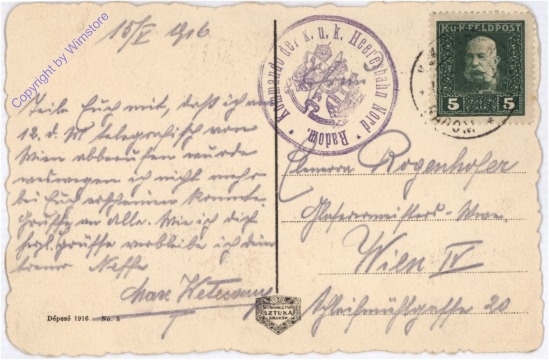 Copyright by Wimstore
15/V 1916
Teile Euch mit, daß ich am
12. d. M. telegrafisch von
Wien abberufen wurde
weswegen ich nicht mehr
bei Euch erscheinen konnte.
Grüsse an Alle. Wie ich dich
herzl. grüsse verbleibe ich dein
treuer Neffe
Max
Dépesé 1916 — No. 3
WYDAWNICTWO
SZTUKA
KRAKÓW
Kommando der k. u. k. Heeresbahn Nord
* Radom. *
K.u.K. FELDPOST
5 5
RADOM
Rogenhofer
Glasermeisters-Wwe.
Wien IV
Schleifmühlgasse 20